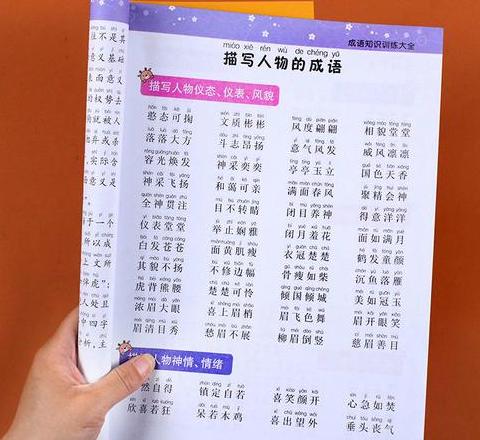 成语知识训练大全
miáo xiě rén wù de chéng yǔ
描写人物的成语
描写人物仪态、仪表、风貌
憨态可掬 文质彬彬 风度翩翩 相貌堂堂
落落大方 斗志昂扬 意气风发 威风凛凛
容光焕发 神采奕奕 亭亭玉立 国色天香
神采飞扬 和蔼可亲 满面春风 聚精会神
全神贯注 目不转睛 闭目养神 得意洋洋
仪表堂堂 举止娴雅 闭月羞花 面如满月
白发苍苍 面黄肌瘦 衣冠楚楚 鹤发童颜
其貌不扬 不修边幅 骨瘦如柴 沉鱼落雁
虎背熊腰 楚楚可怜 倾国倾城 美如冠玉
浓眉大眼 喜上眉梢 眉飞色舞 眉开眼笑
眉清目秀 愁眉不展 柳眉倒竖 慈眉善目
人物神情、情绪
然自得 镇定自若 喜笑颜开 心急如焚
欣喜若狂 呆若木鸡 喜出望外 垂头丧气
不是其
意义基础
表面意义
的权势去
就被人
弃或杀
实际含
意义是
于一个
所以成
上文所
虎”：
人处且
中四字
析，主